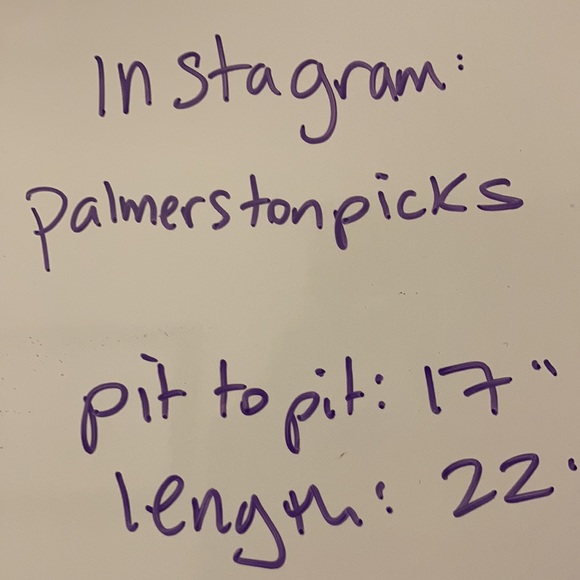 Instagram:
palmerstonpicks
pit to pit: 17"
length: 22"